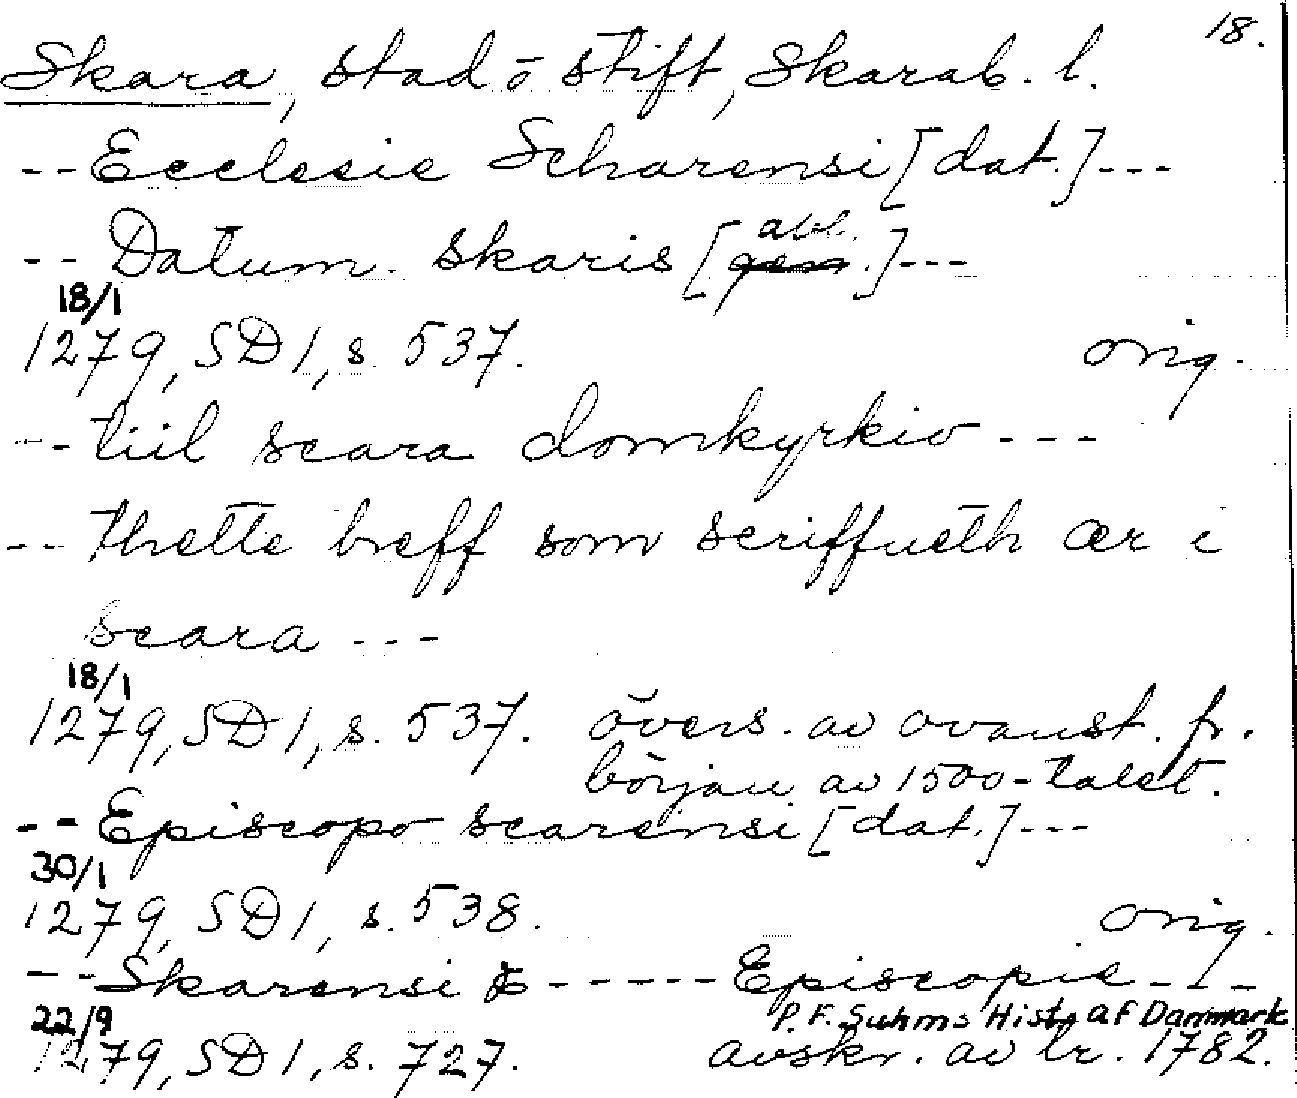 18.
Skara, stad o stift, Skarab. l.
-- Ecclesie Scharensi [dat.] ---
-- Datum skaris [gen. abl.] ---
18/1
1279, SD 1, s. 537. orig.
-- tiil scara domkyrkio ---
-- thette breff som scriffueth ær i
scara ---
18/1
1279, SD 1, s. 537. övers. av ovanst. fr.
början av 1500-talet.
-- Episcopo scarensi [dat.] ---
30/1
1279, SD 1, s. 538. orig.
-- Skarensi ------ Episcopie ---
22/9 P. F. Suhms Hist. af Danmark
1279, SD 1, s. 727. avskr. av tr. 1782.